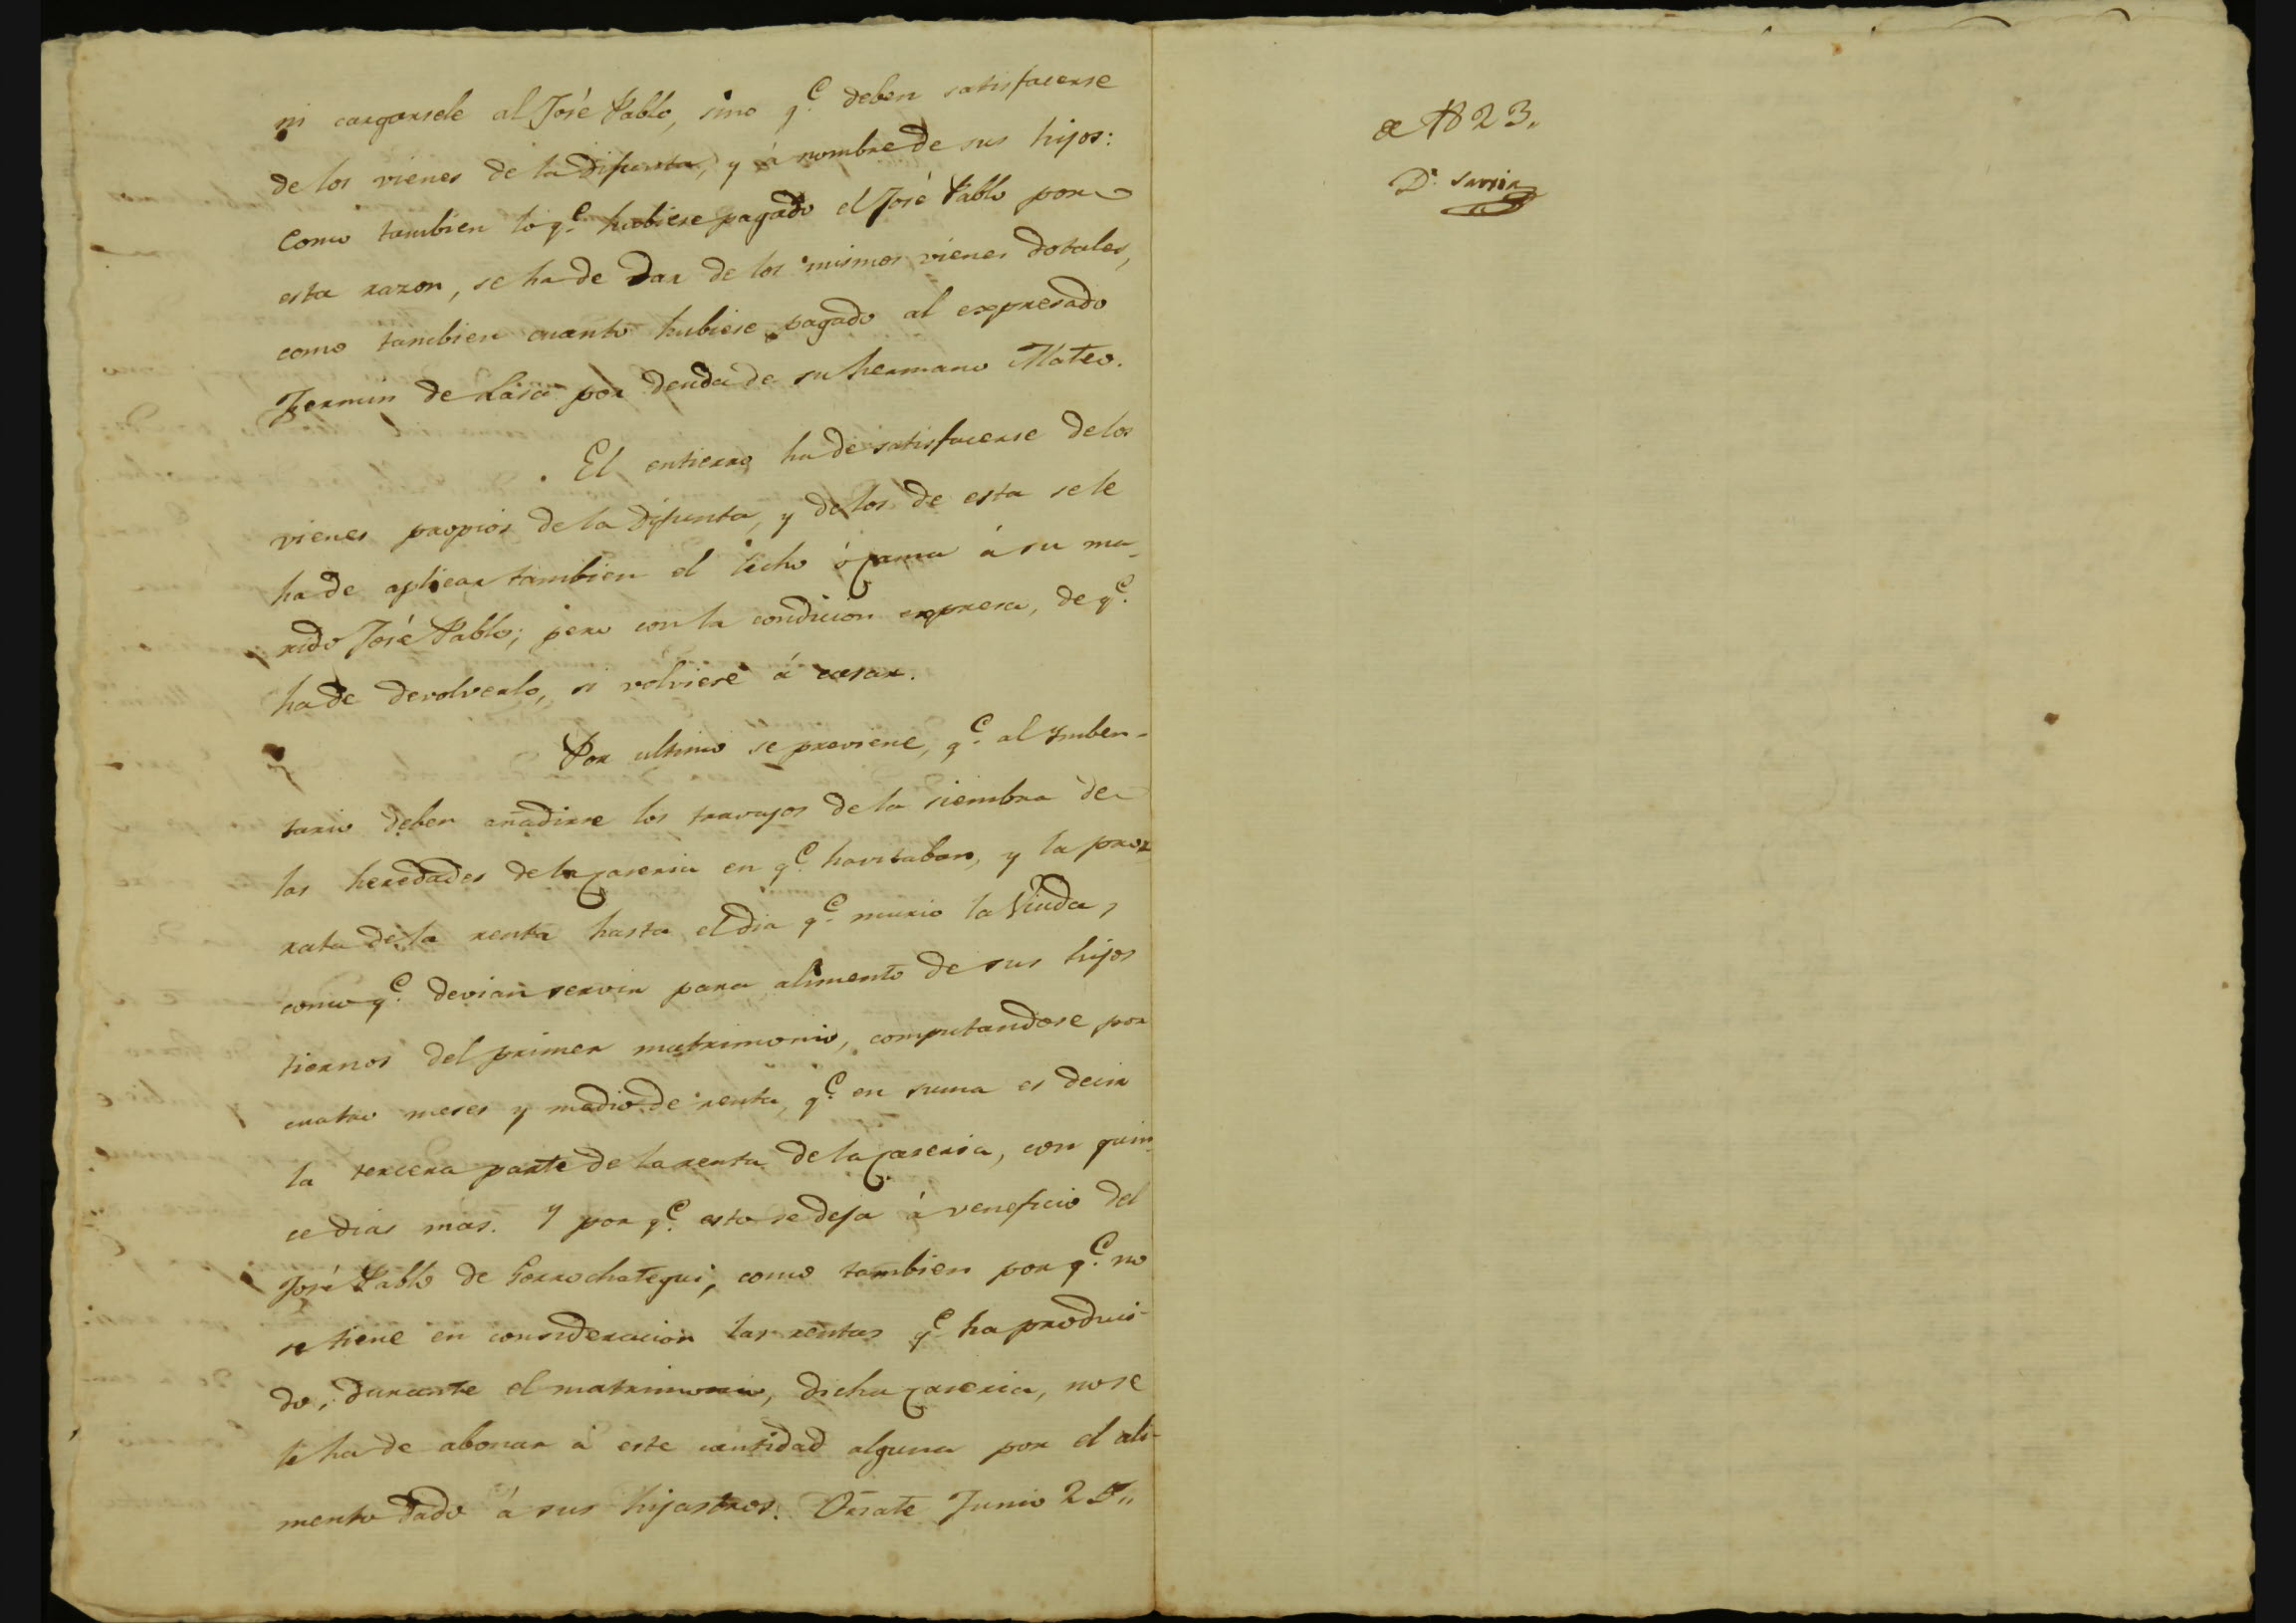 ni cargarsele al José Pablo, sino q.e deben satisfacerse
de los vienes de la Difunta, y á nombre de sus hijos:
Como tambien lo q.e hubiere pagado el José Pablo por
esta razon, se ha de dar de los mismos vienes dotales,
como tambien cuanto hubiese pagado al expresado
Fermin de por deuda de su hermano Mateo.
El entierro ha de satisfacerse de los
vienes propios de la Difunta, y de los de esta se le
ha de aplicar tambien el lecho ó cama á su ma-
rido José Pablo; pero con la condicion expresa, de q.e
ha de devolverlo, si volviese á casar.
Por ultimo se previene, q.e al Ymben-
tario deben añadirse los travajos de la siembra de
las heredades de la caseria en q.e havitaban, y la pror
rata de la renta hasta el dia q.e murio la Viuda,
como q.e devian servir para alimento de sus hijos
tiernos del primer matrimonio, computandose por
cuatro meses y medio de renta, q.e en suma es decir
la tercera parte de la renta de la caseria, con quin-
ce dias mas. Y por q.e esto se deja á veneficio del
José Pablo de Gorrochategui, como tambien por q.e no
se tiene en consideracion las rentas q.e ha produci-
do, durante el matrimonio, dicha caseria, no se
le ha de abonar á este cantidad alguna por el ali-
mento dado á sus hijastros. Oñate Junio 25,,
de 1823,,
D.r